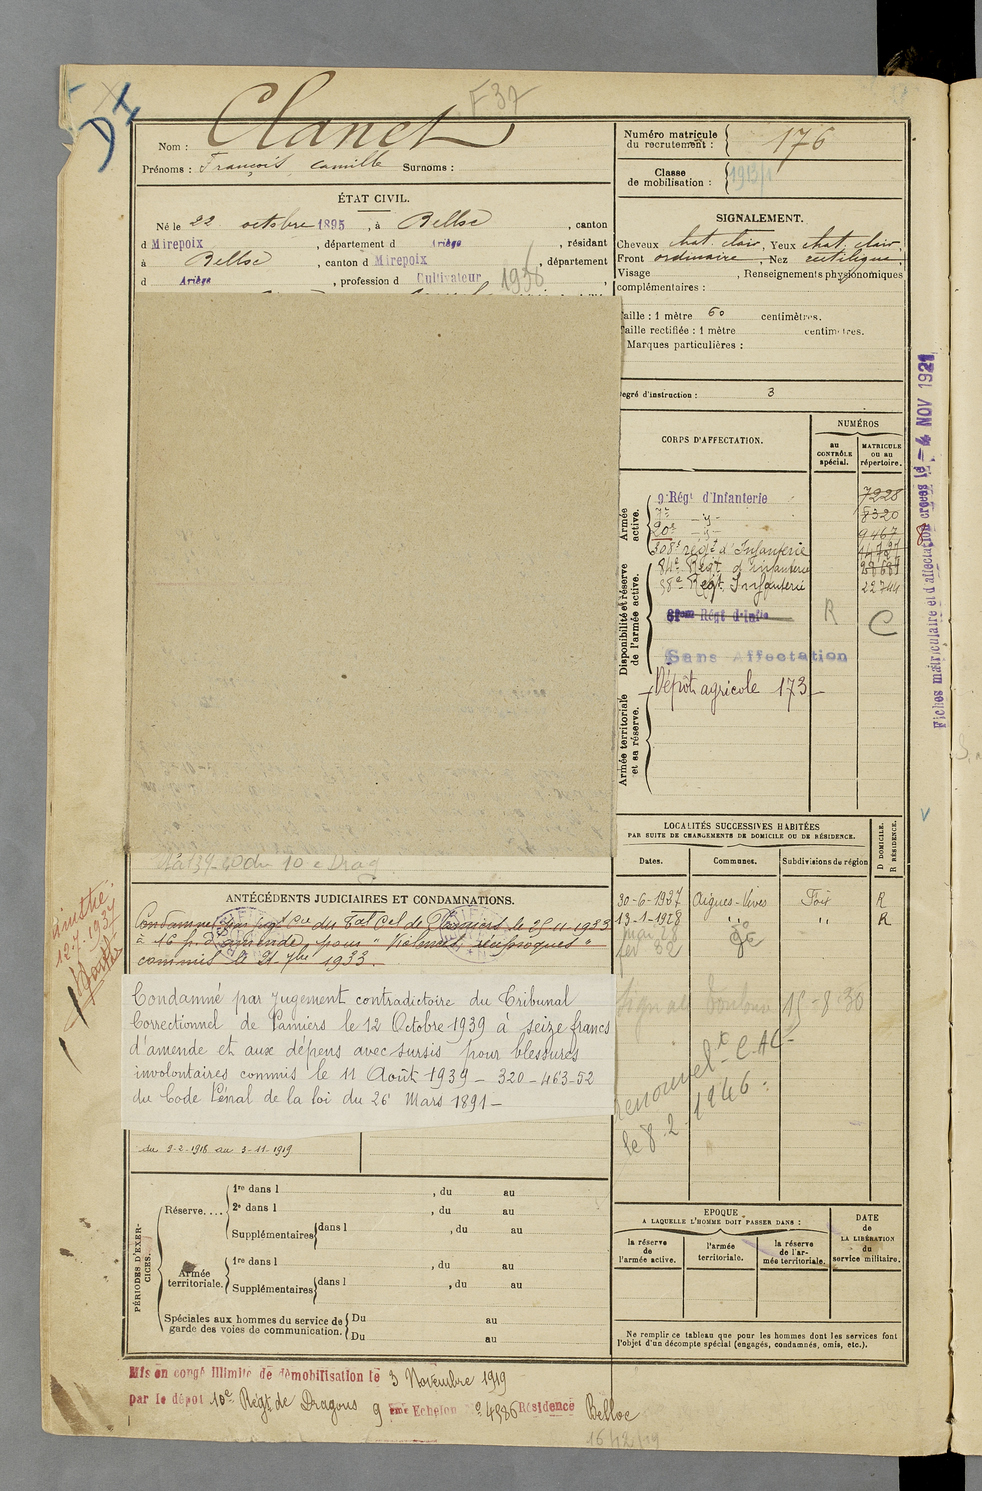 F 37
DI
Nom : Clanet
Prénoms : François Camille Surnoms :
Numéro matricule du recrutement : 176
Classe de mobilisation : 1913/1
ÉTAT CIVIL.
Né le 22 octobre 1895, à Belloc, canton
d Mirepoix, département d Ariège, résidant
à Belloc, canton d Mirepoix, département
d Ariège, profession d Cultivateur
1936
SIGNALEMENT.
Cheveux chat. clair, Yeux chat. clair,
Front ordinaire, Nez rectiligne,
Visage , Renseignements physionomiques
complémentaires :
Taille : 1 mètre 60 centimètres.
Taille rectifiée : 1 mètre centimètres.
Marques particulières :
Degré d'instruction : 3
CORPS D'AFFECTATION.
NUMÉROS
au CONTRÔLE spécial.
MATRICULE ou au répertoire.
Armée active.
9e Régt d'Infanterie 7228
7e -y- 8320
20e -y- 9467
308e régt d'Infanterie
Disponibilité et réserve de l'armée active.
84e Régt d'infanterie
38e Régt Infanterie 22744
81ème Régt d'Infie R C
Sans Affectation
Armée territoriale et sa réserve.
Dépôt agricole 173
Fiches matriculaire et d'affectation créées le 4 NOV 1921
LOCALITÉS SUCCESSIVES HABITÉES
PAR SUITE DE CHANGEMENTS DE DOMICILE OU DE RÉSIDENCE.
Dates. Communes. Subdivisions de région D DOMICILE. R RÉSIDENCE.
30-6-1927 Aigues-Vives Foix R
13-1-1928 " " R
mai 28
fev 32
Signalé Toulouse 15-8-30
renouvelt C.A.C.
le 8.2.1946
10e Drag
ANTÉCÉDENTS JUDICIAIRES ET CONDAMNATIONS.
Condamné par jugt Cie du Tal Cel de Pamiers le 25 11 1933
à 16 f. d'amende, pour "Violences réciproques"
commis le 21 7bre 1933.
Condamné par jugement contradictoire du Tribunal
Correctionnel de Pamiers le 12 Octobre 1939 à seize francs
d'amende et aux dépens avec sursis pour blessures
involontaires commis le 11 Août 1939 - 320-463-52
du Code Pénal de la loi du 26 Mars 1891 -
12-7-1937
du 9-2-1918 au 3-11-1919
PÉRIODES D'EXERCICES.
Réserve....
1re dans l , du au
2e dans l , du au
Supplémentaires dans l , du au
Armée territoriale.
1re dans l , du au
Supplémentaires dans l , du au
Spéciales aux hommes du service de garde des voies de communication.
Du au
Du au
EPOQUE
A LAQUELLE L'HOMME DOIT PASSER DANS :
la réserve de l'armée active.
l'armée territoriale.
la réserve de l'armée territoriale.
DATE de LA LIBÉRATION du service militaire.
Ne remplir ce tableau que pour les hommes dont les services font
l'objet d'un décompte spécial (engagés, condamnés, omis, etc.).
Mis en congé illimité de démobilisation le 3 Novembre 1919
par le dépôt 10e Régt de Dragons 9 ème Echelon no 4536 Résidence Belloc
16/12/19